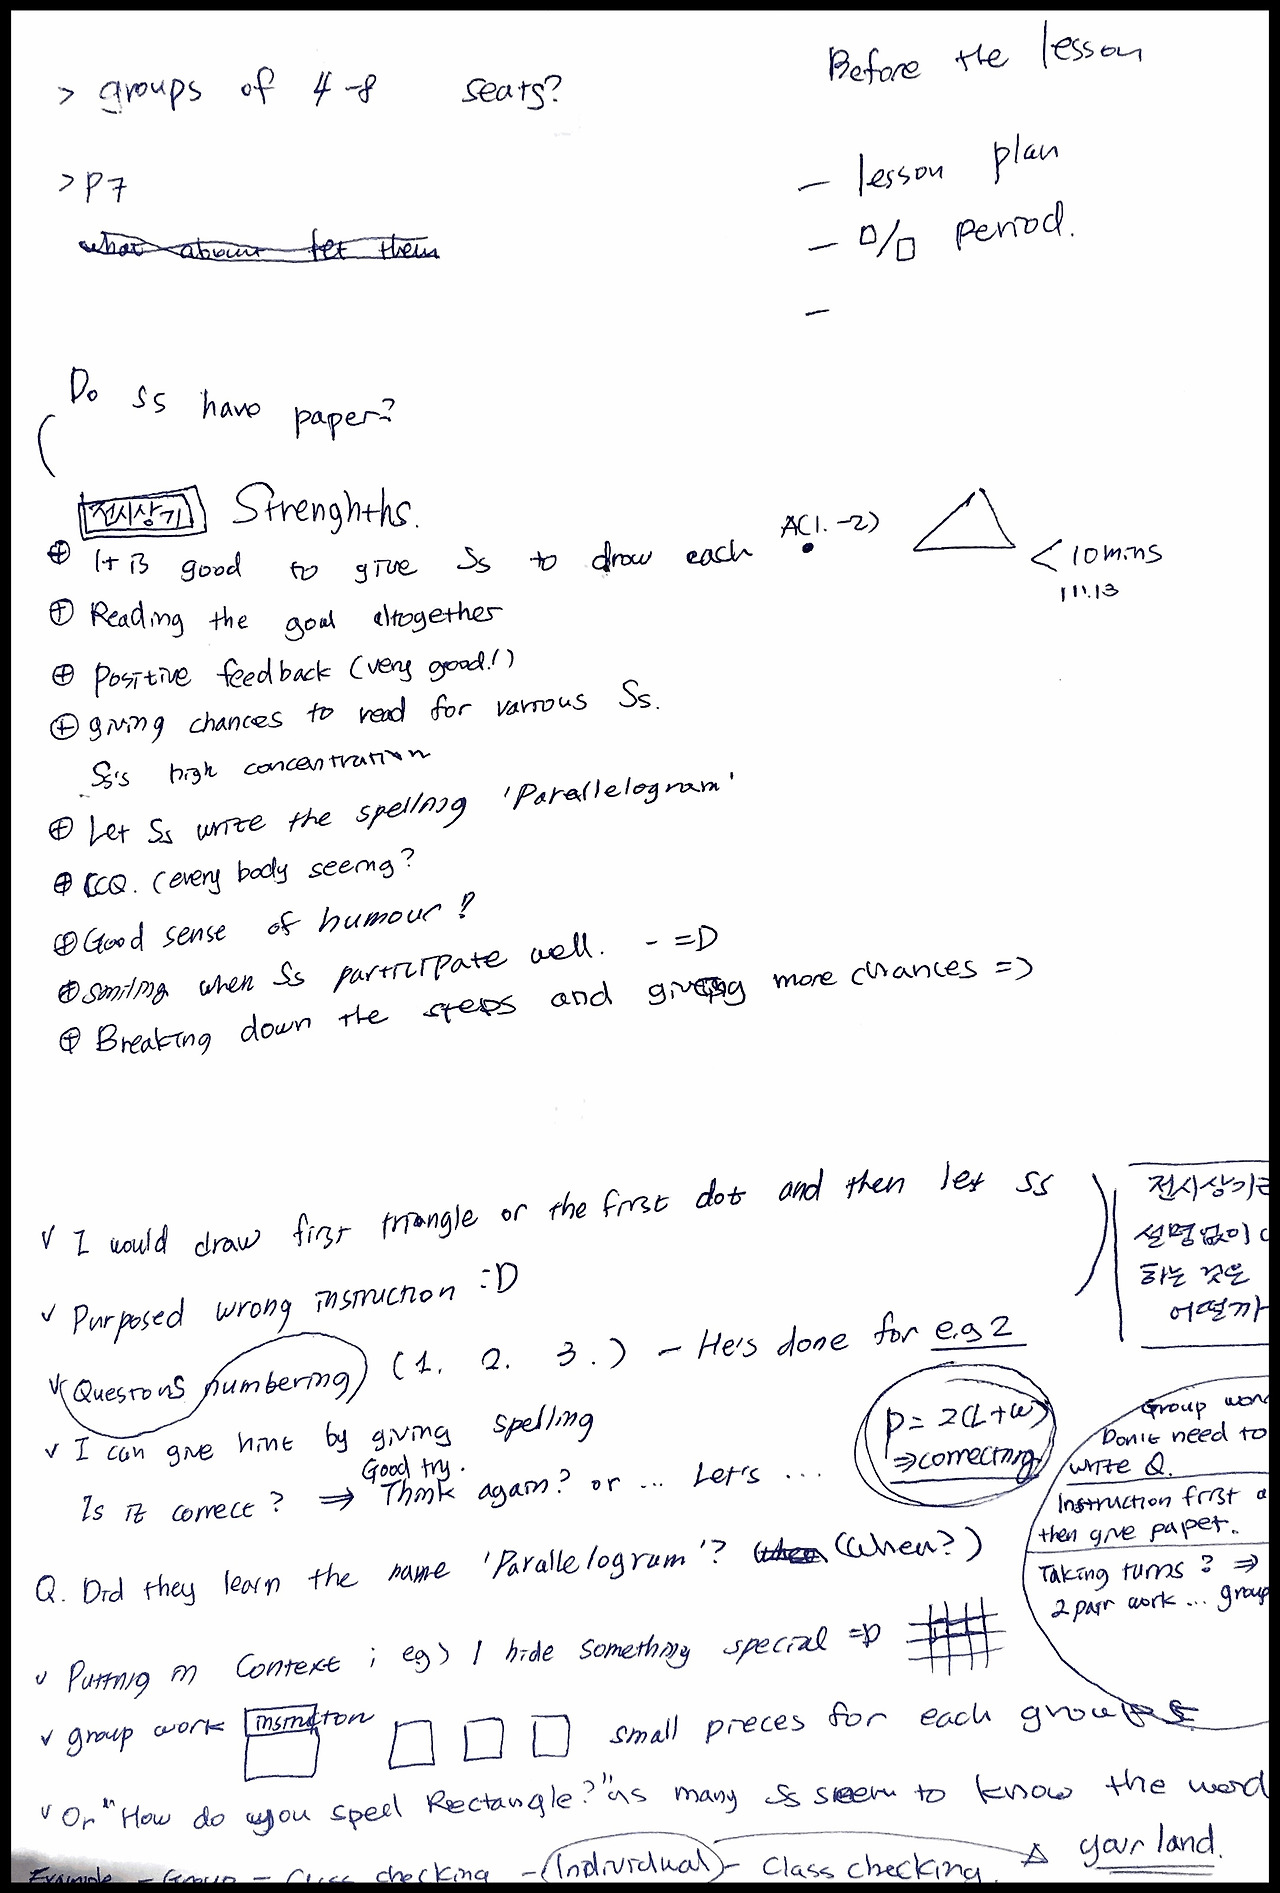 > groups of 4-8 seats?
Before the lesson
> P7
- lesson plan
- □/□ period.
-
what about let them
Do ss have paper?
전시상기 Strenghths.
⊕ It is good to give Ss to draw each A(1. -2)
< 10mins
11:13
⊕ Reading the goal altogether
⊕ Positive feedback (very good!)
⊕ giving chances to read for various Ss.
Ss's high concentration
⊕ Let Ss write the spelling 'Parallelogram'
⊕ CCQ. (every body seeing?
⊕ Good sense of humour?
⊕ smiling when Ss participate well. - =D
⊕ Breaking down the steps and giving more chances =)
v I would draw first triangle or the first dot and then let ss
전시상기를
설명없이
하는 것은
어떨까
v Purposed wrong instruction :D
v Questions numbering (1. 2. 3.) - He's done for e.g 2
v I can give hint by giving spelling
P = 2(L+W)
⇒correcting
Good try.
Is it correct? ⇒ Think again? or ... Let's ...
Group wor
Don't need to
write Q.
Instruction first a
then give paper.
Taking turns? ⇒
2 pair work ... group
Q. Did they learn the name 'Parallelogram'? (when?)
v Putting in Context ; eg) I hide something special =D
v group work instruction small pieces for each groups
v Or "How do you spell Rectangle?" as many Ss seem to know the word
your land.
Example - Group - Class checking - (Individual) - Class checking